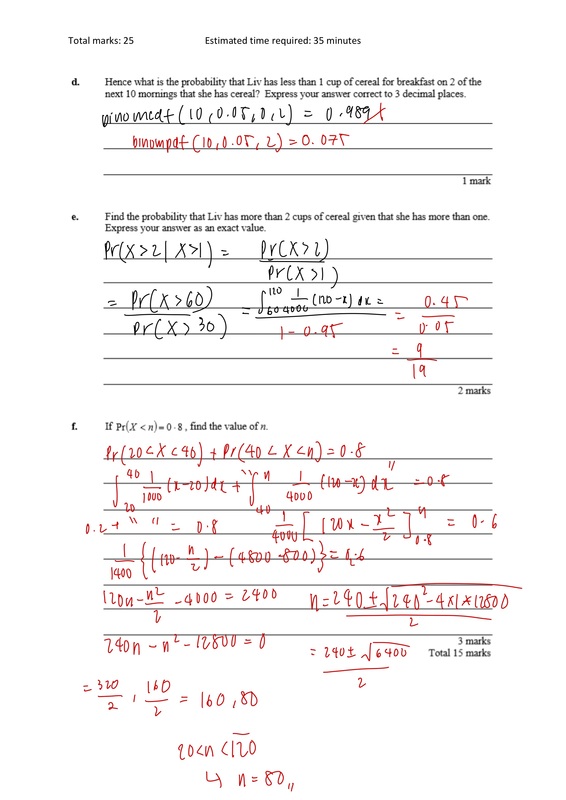 Total marks: 25 Estimated time required: 35 minutes
d. Hence what is the probability that Liv has less than 1 cup of cereal for breakfast on 2 of the
next 10 mornings that she has cereal? Express your answer correct to 3 decimal places.
binomcdf(10,0.05,0,2) = 0.989
binompdf(10,0.05,2)=0.075
1 mark
e. Find the probability that Liv has more than 2 cups of cereal given that she has more than one.
Express your answer as an exact value.
Pr(X>2|X>1) = Pr(X>2) / Pr(X>1)
= Pr(X>60) / Pr(X>30) = ∫₆₀¹²⁰ 1/4000 (120-x) dx = / 1-0.95 = 0.45 / 0.05
= 9/19
2 marks
f. If Pr(X < n) = 0·8 , find the value of n.
Pr(20<X<40) + Pr(40<X<n)=0.8
∫₂₀⁴⁰ 1/1000 (x-20)dx + "∫₄₀ⁿ 1/4000 (120-x)dx" = 0.8
0.2 + " " = 0.8 1/4000 [120x - x²/2]ⁿ₀.₈ = 0.6
1/1400 {(120-n/2)-(4800-800)}=0.6
120n-n²/2 -4000 = 2400 n=240±√240²-4×1×12800 / 2
3 marks
240n-n²-12800=0 = 240±√6400 / 2
Total 15 marks
= 320/2 , 160/2 = 160,80
20<n<120
↳ n=80,,